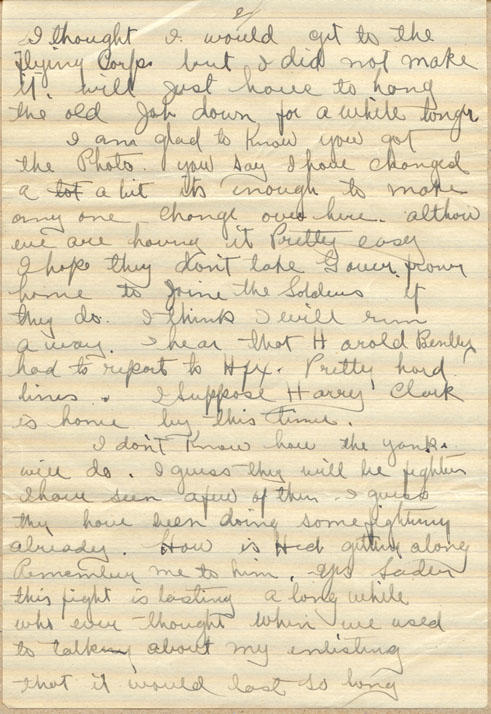 2/
I thought I would get to the
Flying Corps but I did not make
it. will just have to hang
the old Job down for a while longer
I am glad to Know you got
the Photo. you say I have changed
a lot a bit its enough to make
any one change over here. althou
we are having it Pretty easy
I hope they don't take from
home to Joine the Soldiers if
they do. I think I will run
a way. I hear that Harold Bently
had to report to Hfx. Pretty hard
lines. I Suppose Harry Clark
is home by this time.
I don't Know how the yanks
will do. I guess they will be fighters
I have seen a few of them. I guess
they have been doing some fighting
already. How is getting along
Remember me to him. Yes Sadie
this fight is lasting a long while
who ever thought when we used
to talk about my enlisting
that it would last so long